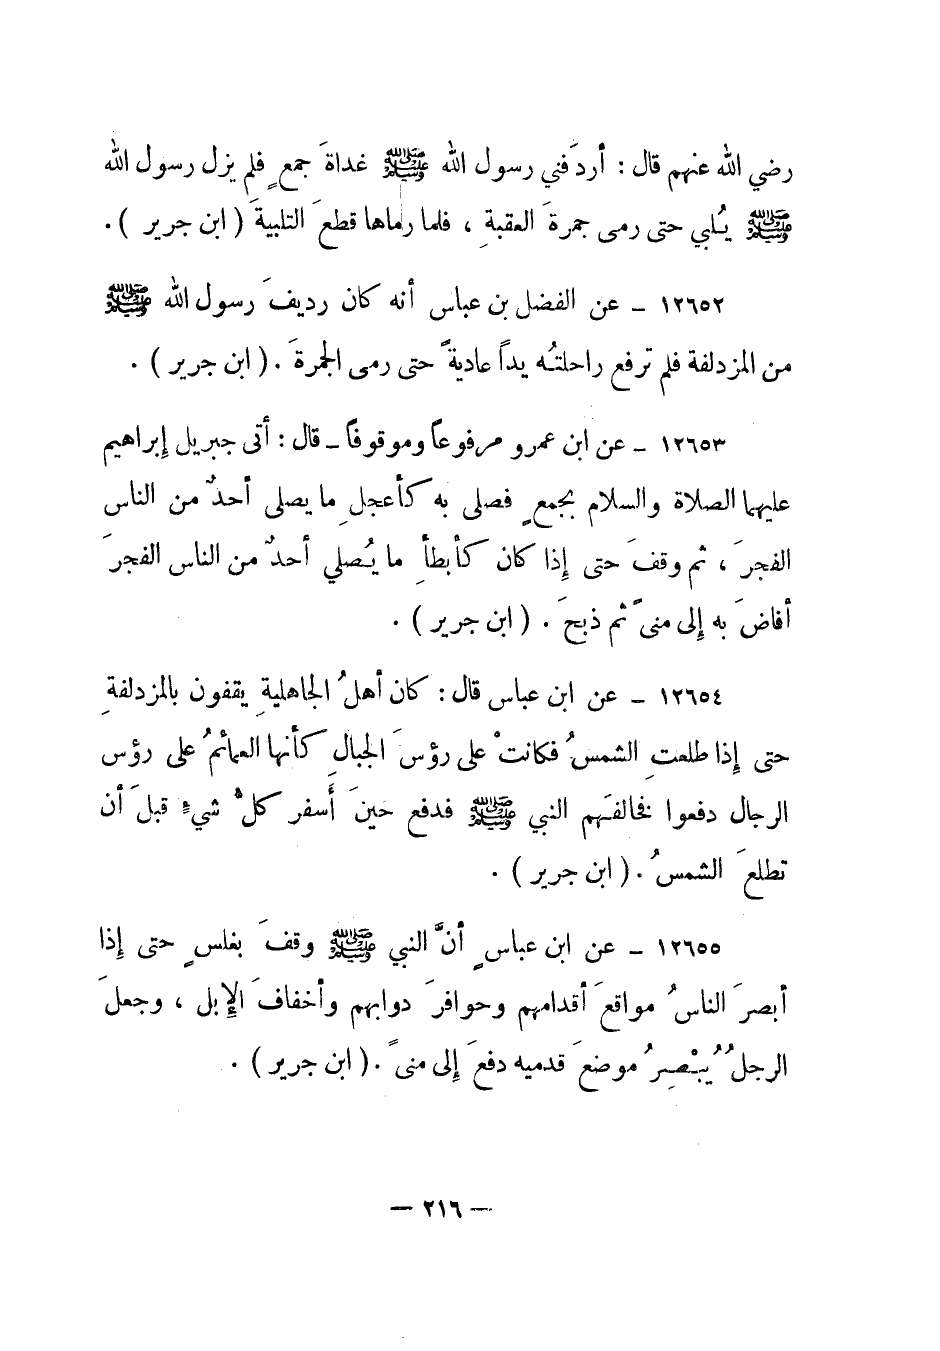 رضي الله عنهم قال : أردَفني رسول الله ﷺ غداةَ جمعٍ فلم يزل رسول الله
ﷺ يُلبي حتى رمى جمرةَ العقبةِ ، فلما رماها قطعَ التلبيةَ ( ابن جرير ) .
١٢٦٥٢ ـ عن الفضل بن عباس أنه كان رديفَ رسول الله ﷺ
من المزدلفة فلم ترفع راحلتُه يداً عاديةً حتى رمى الجمرةَ . ( ابن جرير ) .
١٢٦٥٣ ـ عن ابن عمرو مرفوعاً وموقوفاً ـ قال : أتى جبريل إبراهيم
عليهما الصلاة والسلام بجمعٍ فصلى به كأعجلِ ما يصلى أحدٌ من الناس
الفجرَ ، ثم وقفَ حتى إذا كان كأبطأِ ما يُصلي أحدٌ من الناس الفجرَ
أفاضَ به إلى منىً ثم ذبحَ . ( ابن جرير ) .
١٢٦٥٤ ـ عن ابن عباس قال : كان أهلُ الجاهليةِ يقفون بالمزدلفةِ
حتى إذا طلعتِ الشمسُ فكانتْ على رؤسَ الجبالِ كأنها العمائمُ على رؤس
الرجال دفعوا فخالفَهم النبي ﷺ فدفع حينَ أَسفر كلُّ شيءٍ قبلَ أن
تطلعَ الشمسُ . ( ابن جرير ) .
١٢٦٥٥ ـ عن ابن عباسٍ أنَّ النبي ﷺ وقفَ بغلسٍ حتى إذا
أبصرَ الناسُ مواقعَ أقدامهم وحوافرَ دوابهم وأخفافَ الإِبل ، وجعلَ
الرجلُ يُبْصِرُ موضعَ قدميه دفعَ إلى منىً . ( ابن جرير ) .
— ٢١٦ —